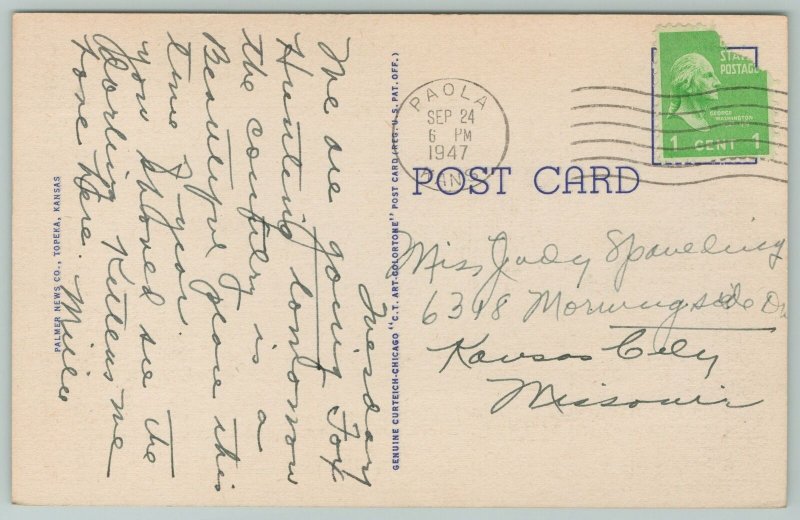 Tuesday
We are going Fox
Hunting tomorrow
the country is a
Beautiful place this
time of year.
you should see the
Darling Kittens we
have here. Millie
PALMER NEWS CO., TOPEKA, KANSAS
GENUINE CURTEICH-CHICAGO "C.T. ART-COLORTONE" POST CARD (REG. U.S. PAT. OFF.)
PAOLA
SEP 24
6 PM
1947
KANS.
STATES
POSTAGE
GEORGE
WASHINGTON
1 CENT 1
POST CARD
Miss Judy Spaulding
6318 Morningside Dr
Kansas City
Missouri